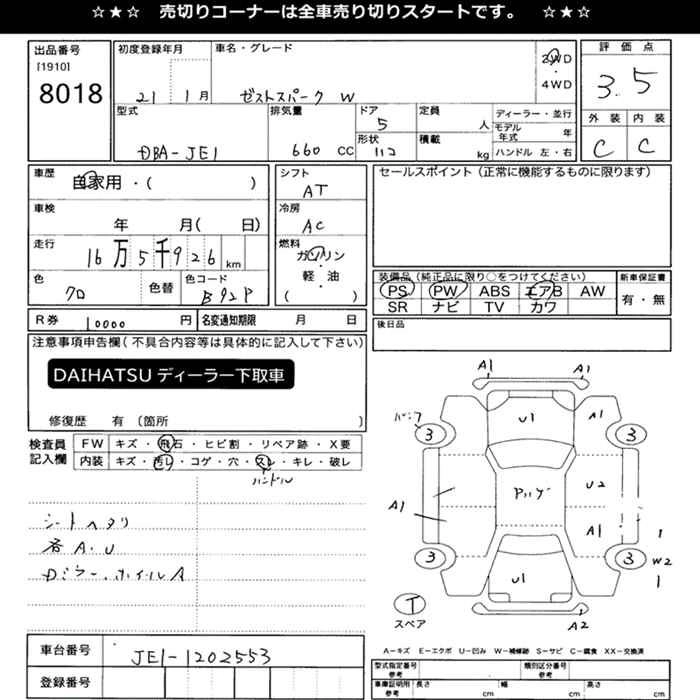 ☆★☆ 売切りコーナーは全車売り切りスタートです。 ☆★☆
出品番号
[1910]
8018
初度登録年月
21 1月
車名・グレード
ゼストスパーク W
2WD
4WD
評価点
3.5
外装 内装
C C
型式
DBA-JE1
排気量
660 CC
ドア
5
形状
定員
人
積載
kg
ディーラー・並行
モデル年式 年
ハンドル 左・右
車歴
自家用・( )
車検
年 月( 日)
走行
16万5千926km
色
クロ
色替
色コード
B92P
シフト
AT
冷房
AC
燃料
ガソリン
軽・油
( )
セールスポイント(正常に機能するものに限ります)
装備品(純正品に限り○をつけてください)
PS PW ABS エアB AW
SR ナビ TV カワ
新車保証書
有・無
R券 10000 円
名変通知期限 月 日
後日品
注意事項申告欄(不具合内容等は具体的に記入して下さい)
DAIHATSU ディーラー下取車
修復歴 有 〔箇所 〕
検査員記入欄
FW キズ・飛石・ヒビ割・リペア跡・X要
内装 キズ・汚レ・コゲ・穴・スレ・キレ・破レ
ハンドル
シートヘタリ
各A.U
Dミラー.ホイルA
A1 A1
パンク
3 U1 A1 3
A1 U2
A1
3 U1 3
W2
T
スペア
A2
A-キズ E-エクボ U-凹み W-補修跡 S-サビ C-腐食 XX-交換済
車台番号
JE1-1202553
登録番号
型式指定番号 参考
類別区分番号 参考
車庫証明用 参考
長さ cm
幅 cm
高さ cm